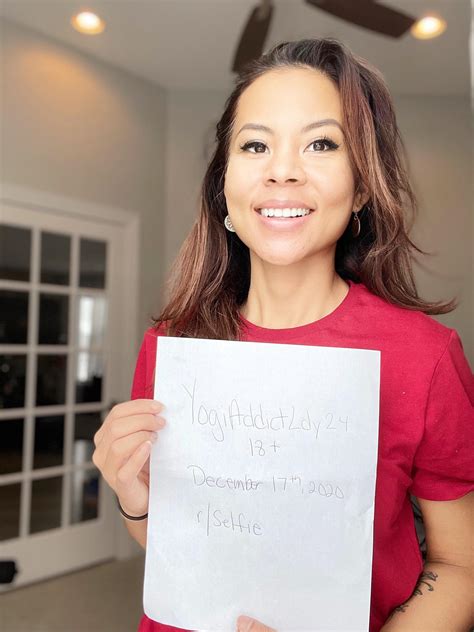 YogiAddictLdy24
18+
December 17th, 2020
r/Selfie